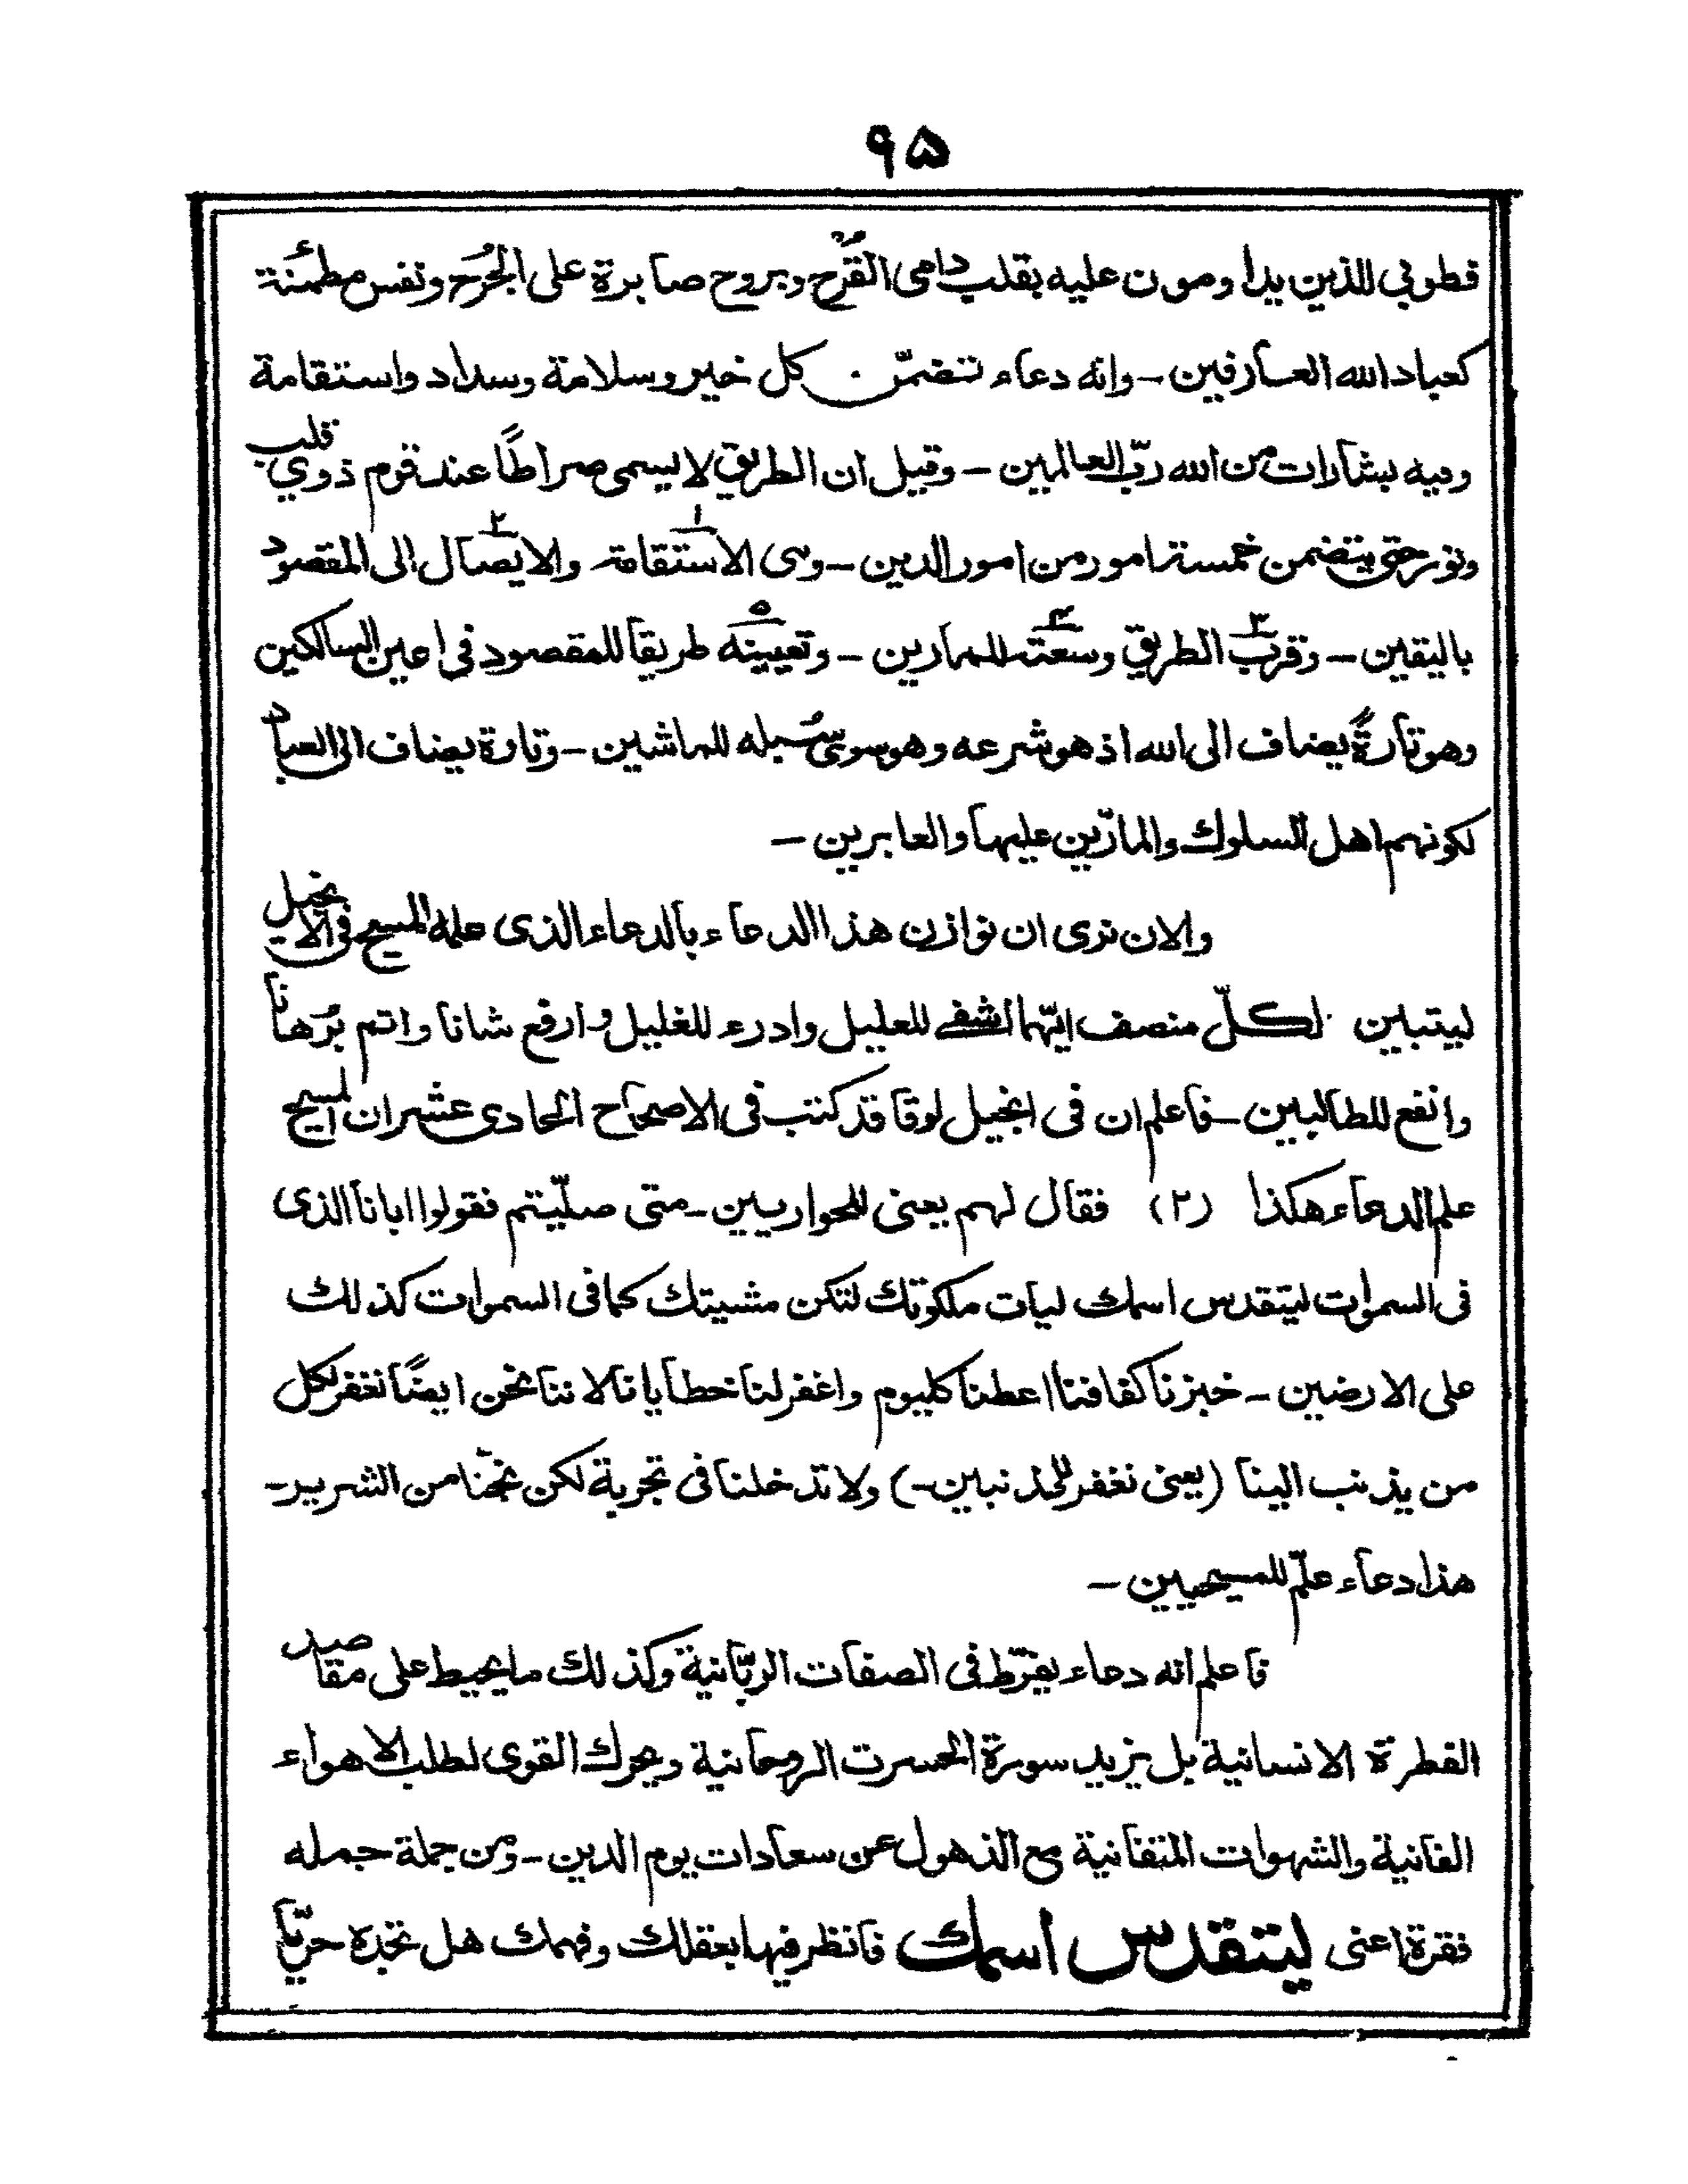 ٩٥
فطوبى للذين يداومون عليه بقلب دامى القُرْح وبروح صابرة على الجُرح ونفس مطمئنة
كعباد الله العارفين - وانه دعاء تضمّن كل خير وسلامة وسداد واستقامة
وفيه بشارات من الله ربّ العالمين - وقيل ان الطريق لا يسمى صراطًا عند قوم ذوي قلب
ونور حتى يتضمن خمسة امور من امور الدين - وهى ١ الاستقامة ٢ والايصال الى المقصود
باليقين - ٣ وقرب الطريق ٤ وسعته للمارين - ٥ وتعيينه طريقا للمقصود فى اعين السالكين
وهو تارةً يضاف الى الله اذ هو شرعه وهو سوى سُبله للماشين - وتارة يضاف الى العباد
لكونهم اهل السلوك والمارّين عليها والعابرين -
والان نرى ان نوازن هذا الدعاء بالدعاء الذى علمه المسيح فى الانجيل
ليتبين لكلّ منصف ايّهما اشفى للعليل وادرء للغليل وارفع شانا واتم بُرهانا
وانفع للطالبين - فاعلم ان فى انجيل لوقا قد كتب فى الاصحاح الحادى عشر ان المسيح
علم الدعاء هكذا (٢) فقال لهم يعنى للحواريين - متى صلّيتم فقولوا ابانا الذى
فى السموات ليتقدس اسمك ليات ملكوتك لتكن مشيتك كما فى السموات كذلك
على الارضين - خبزنا كفافنا اعطنا كليوم واغفر لنا خطايانا لاننا نحن ايضًا نغفر لكل
من يذنب الينا (يعنى نغفر للمذنبين -) ولا تدخلنا فى تجربة لكن نجّنا من الشرير -
هذا دعاء علّم للمسيحيين -
فاعلم انه دعاء يفرّط فى الصفات الربّانية وكذلك ما يحيط على مقاصد
الفطرة الانسانية بل يزيد سورة الحسرت الروحانية ويحرك القوى لطلب الاهواء
الفانية والشهوات المتفانية مع الذهول عن سعادات يوم الدين - ومن جملة جمله
فقرة اعنى ليتقدس اسمك فانظر فيها بعقلك وفهمك هل تجده حريّا